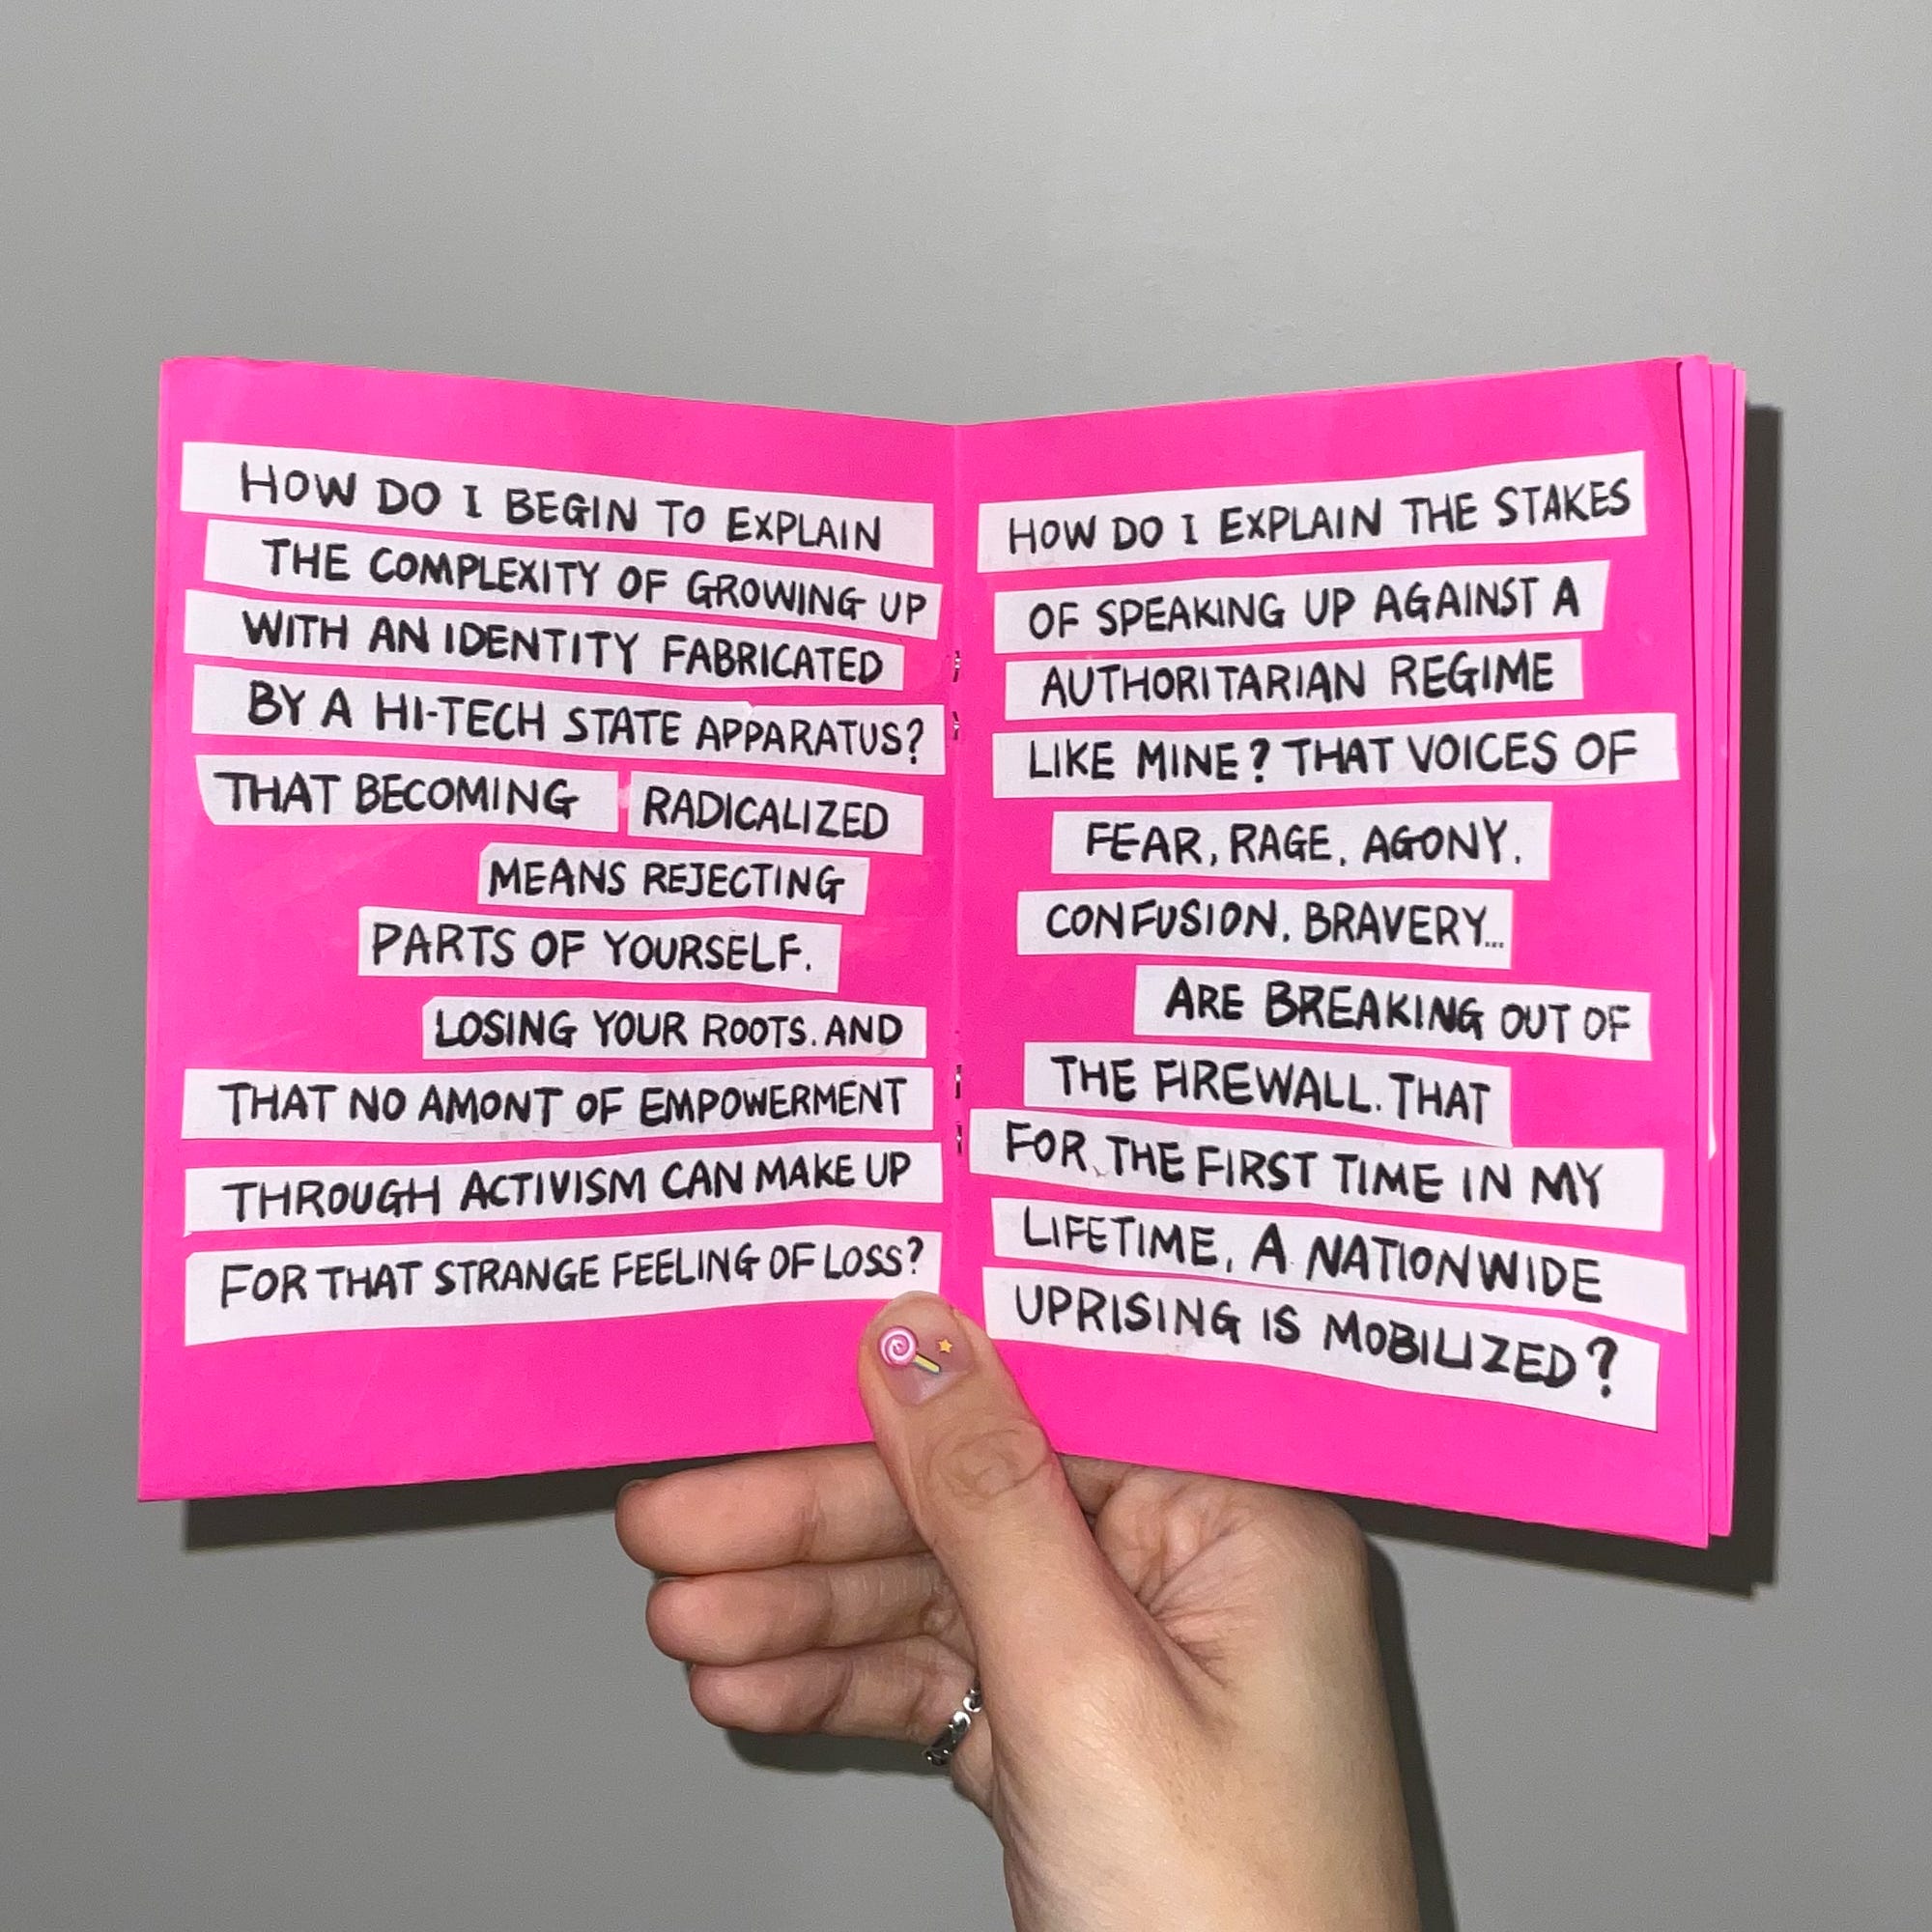 HOW DO I BEGIN TO EXPLAIN
THE COMPLEXITY OF GROWING UP
WITH AN IDENTITY FABRICATED
BY A HI-TECH STATE APPARATUS?
THAT BECOMING RADICALIZED
MEANS REJECTING
PARTS OF YOURSELF.
LOSING YOUR ROOTS. AND
THAT NO AMONT OF EMPOWERMENT
THROUGH ACTIVISM CAN MAKE UP
FOR THAT STRANGE FEELING OF LOSS?
HOW DO I EXPLAIN THE STAKES
OF SPEAKING UP AGAINST A
AUTHORITARIAN REGIME
LIKE MINE? THAT VOICES OF
FEAR, RAGE, AGONY,
CONFUSION, BRAVERY...
ARE BREAKING OUT OF
THE FIREWALL. THAT
FOR THE FIRST TIME IN MY
LIFETIME, A NATIONWIDE
UPRISING IS MOBILIZED?